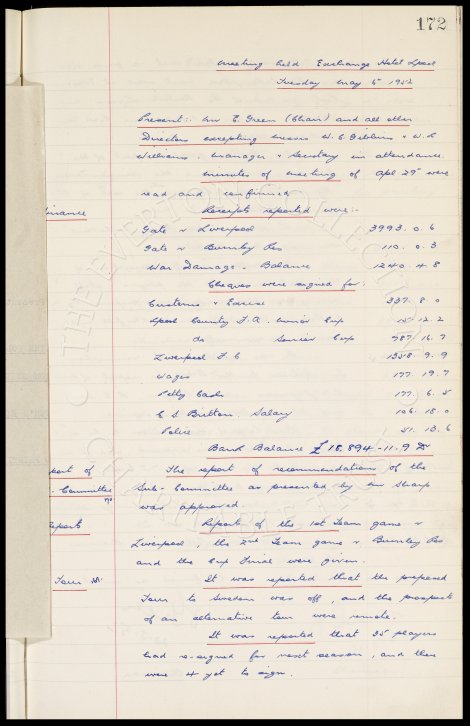 172
Meeting held Exchange Hotel Lpool
Tuesday May 5 1952
Present:- Mr E. Green (Chair) and all other
Directors excepting Messrs W. C. Gibbins & W. R.
Williams. Manager & Secretary in attendance.
Minutes of meeting of Apl 29 were
read and confirmed
Finance Receipts reported were:-
Gate v Liverpool 3993. 0. 6
Gate v Burnley Res 110. 0. 3
War Damage. Balance 1240. 4. 8
Cheques were signed for.
Customs & Excise 337. 8. 0
Lpool County F.A. Junior Cup 15. 12. 2
do Senior Cup 787. 16. 7
Liverpool F C 1358. 9. 9
Wages 177. 19. 7
Petty Cash 177. 6. 5
C S Britton. Salary 106. 18. 0
Police 51. 13. 6
Bank Balance £18,894-11. 9 Dr
port of The report of recommendations of the
Committee Sub-Committee as presented by Mr Sharp
was approved.
Report Report of the 1st Team game v
Liverpool, the 2nd Team game v Burnley Res
and the Cup Final were given.
Tour It was reported that the proposed
Tour to Sweden was off, and the prospects
of an alternative tour were remote.
It was reported that 35 players
had re-signed for next season, and there
were 4 yet to sign.
THE EVERTON COLLECTION
CHARITABLE TRUST